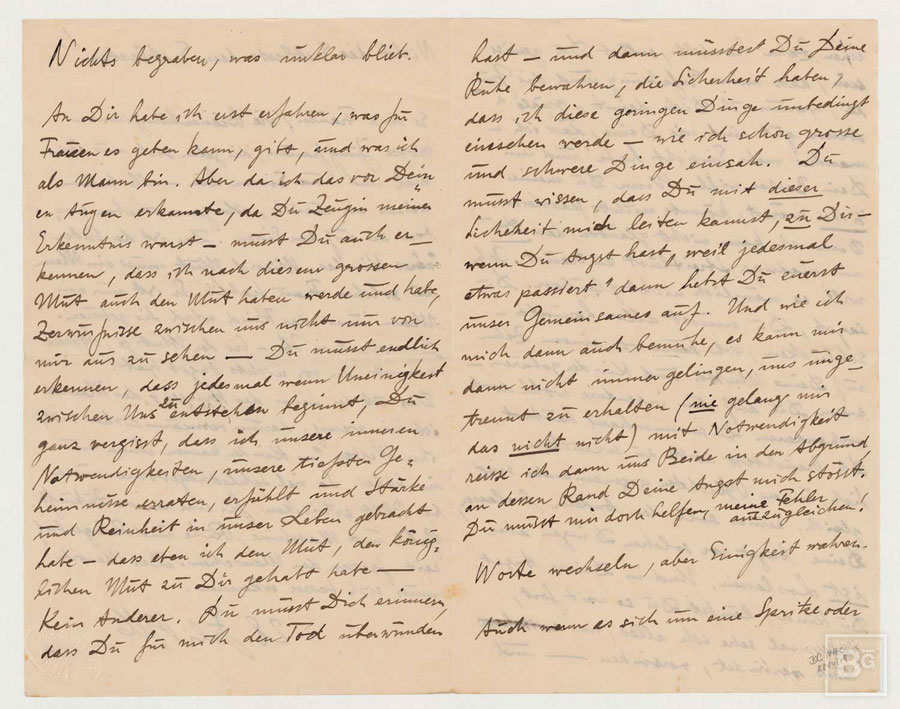 Nichts begraben, was unklar blieb.
An Dir habe ich erst erfahren, was für
Frauen es geben kann, gibt, und was ich
als Mann bin. Aber da ich das vor Dein
en Augen erkannte, da Du Zeugin meiner
Erkenntnis warst – musst Du auch er-
kennen, dass ich nach diesem grossen
Mut auch den Mut haben werde und habe,
Zerwürfnisse zwischen uns nicht nur von
mir aus zu sehen – Du musst endlich
erkennen, dass jedesmal wenn Uneinigkeit
zwischen Uns zu entstehen beginnt, Du
ganz vergisst, dass ich unsere inneren
Notwendigkeiten, unsere tiefsten Ge=
heimnisse erraten, erfühlt und Stärke
und Reinheit in unser Leben gebracht
habe – dass eben ich den Mut, den könig=
lichen Mut zu Dir gehabt habe –
Kein Anderer. Du musst Dich erinnern,
dass Du für mich den Tod überwunden
hast – und dann müsstest Du Deine
Ruhe bewahren, die Sicherheit haben,
dass ich diese geringen Dinge unbedingt
einsehen werde – wie ich schon grosse
und schwere Dinge einsah. Du
musst wissen, dass Du mit dieser
Sicherheit mich leiten kannst, zu Dir –
wenn Du Angst hast, weil jedesmal
etwas passiert, dann hebst Du zuerst
unser Gemeinsames auf. Und wie ich
mich dann auch bemühe, es kann mir
dann nicht immer gelingen, uns unge-
trennt zu erhalten (nie gelang mir
das nicht nicht) mit Notwendigkeit
reisse ich dann uns Beide in den Abgrund
an dessen Rand Deine Angst mich stösst.
Du musst mir doch helfen, meine Fehler
auszugleichen!
Worte wechseln, aber Einigkeit wahren.
Auch wenn es sich um eine Spritze oder
BG